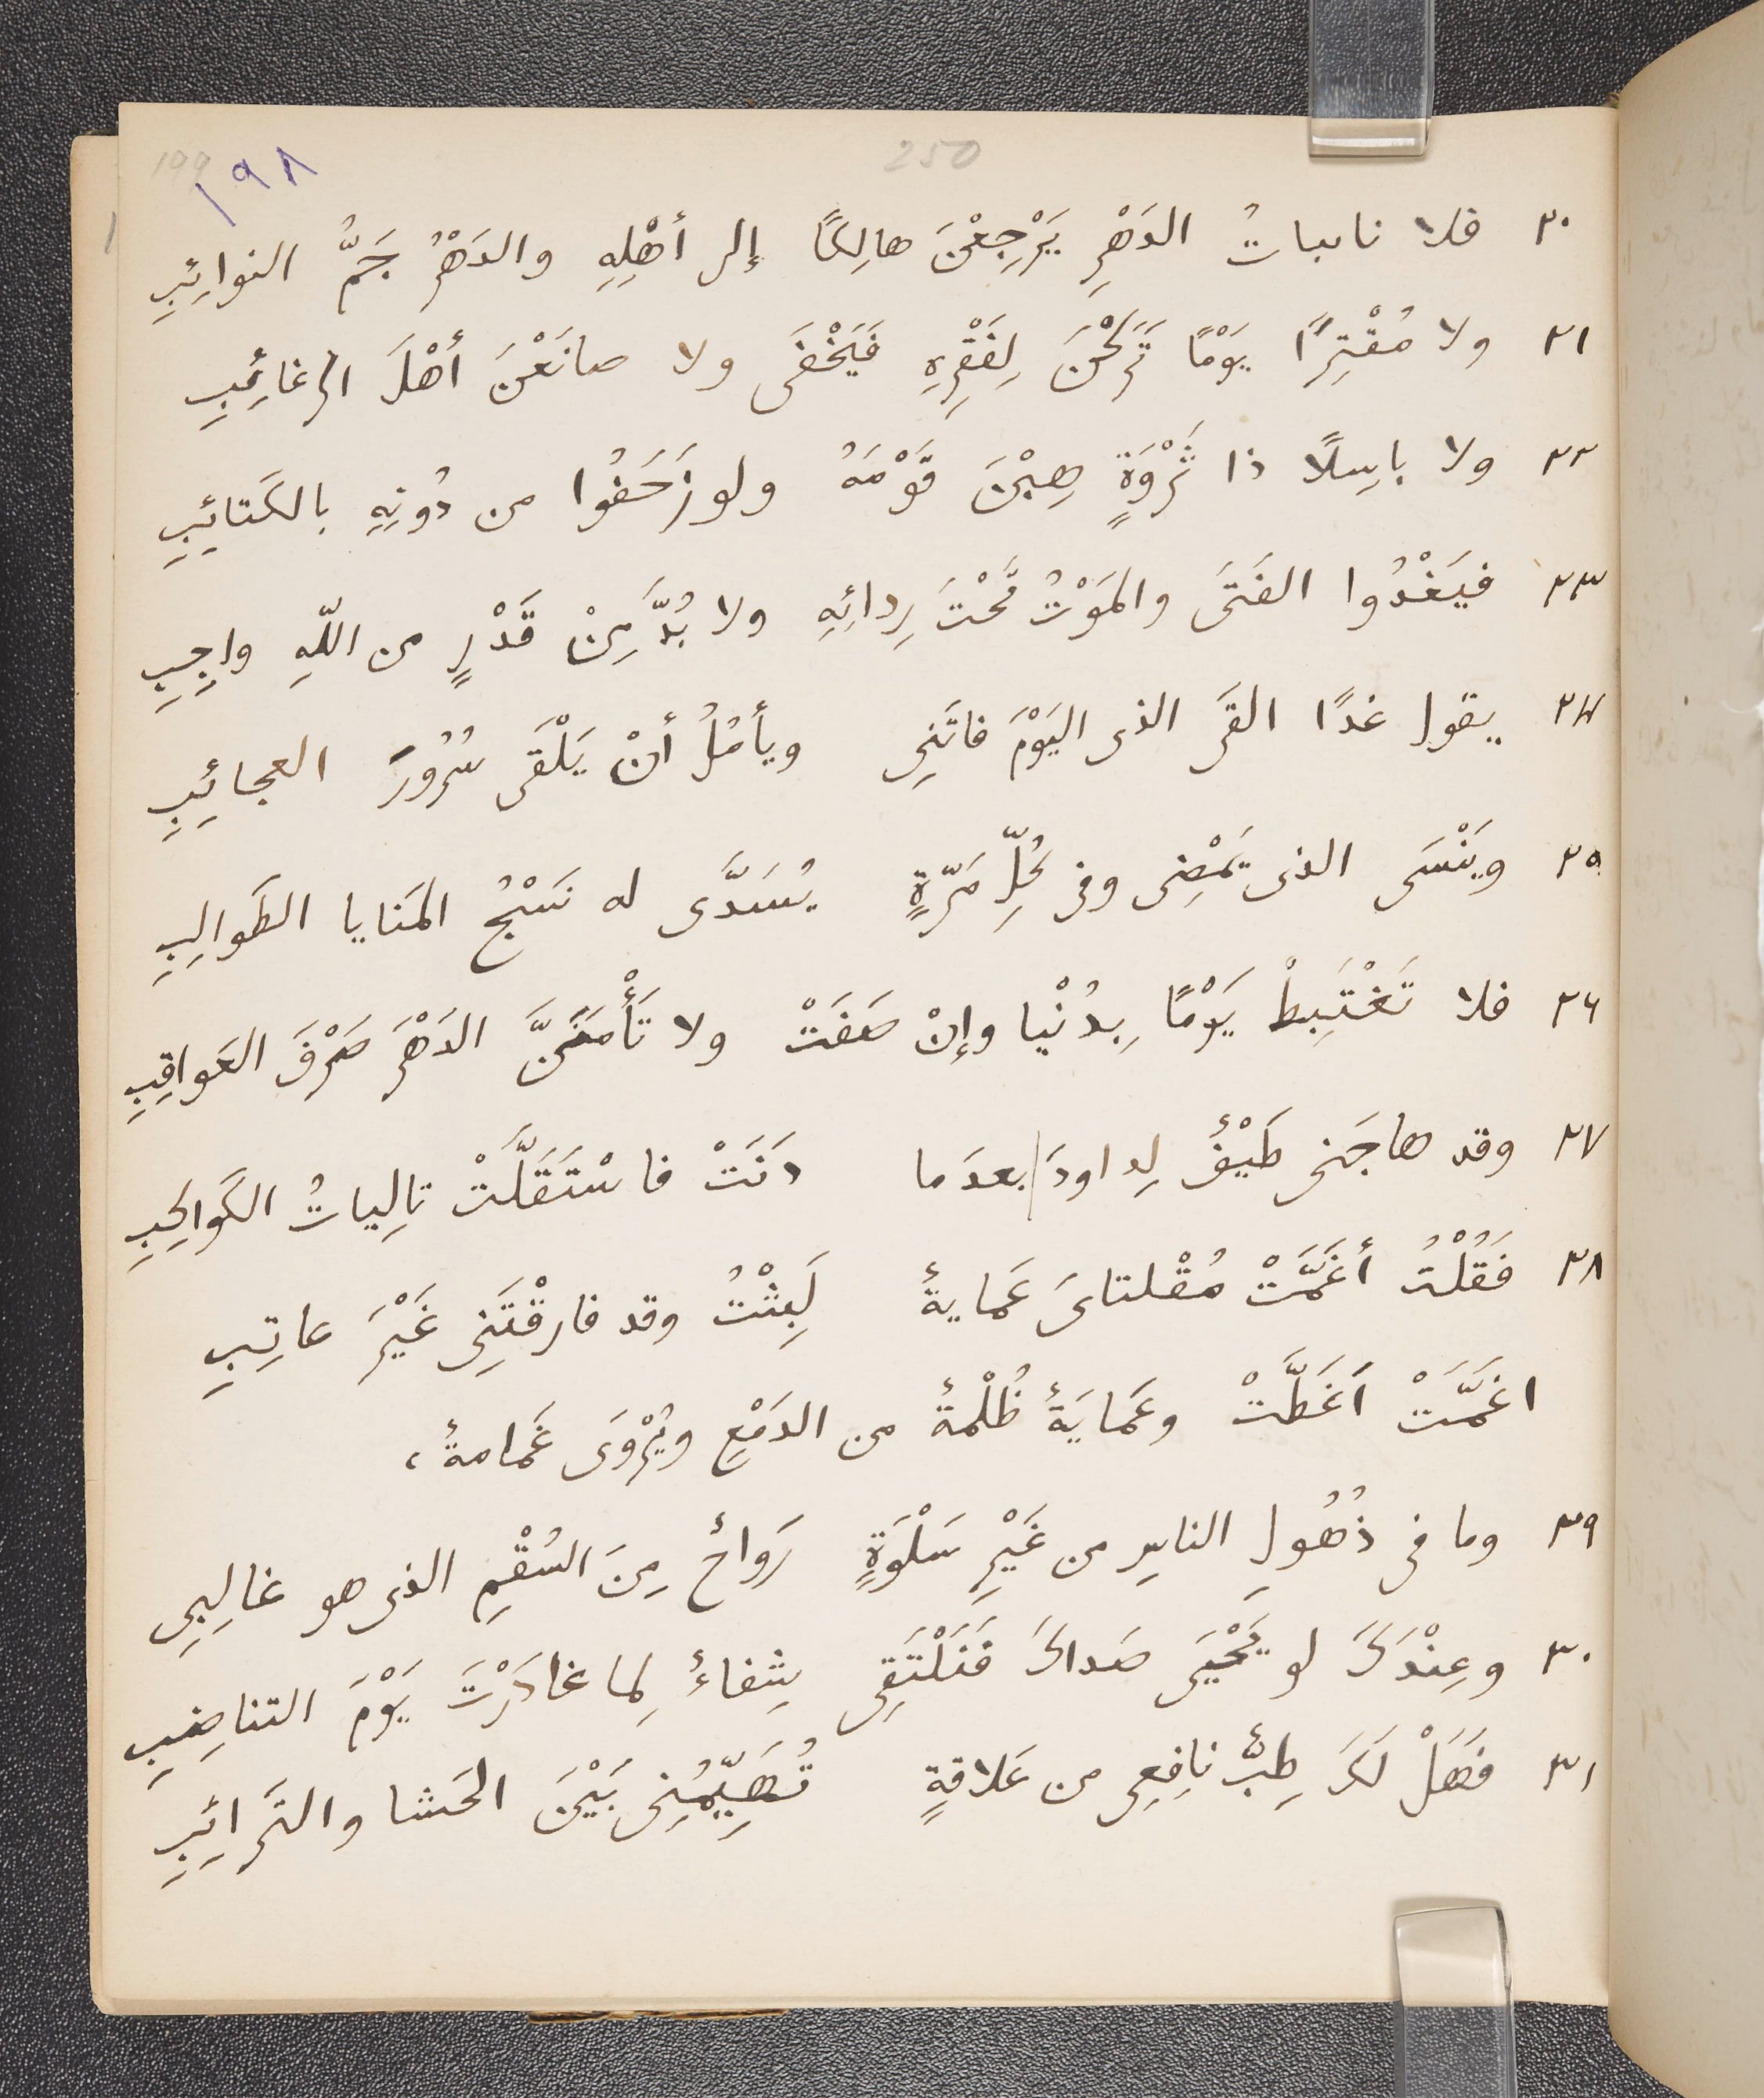 199 ١٩٨ 250
٢٠ فلا نائباتُ الدَهْرِ يَرْجِعْنَ هالِكًا إلى أهْلِهِ والدَهْرُ جَمُّ النوائِبِ
٢١ ولا مُقْتِرًا يَوْمًا تَرَكْنَ لِفَقْرِهِ فَيَخْفَى ولا صانَعْنَ أهْلَ الرغائِبِ
٢٢ ولا باسِلًا ذا ثَرْوَةٍ هِبْنَ قَوْمَهُ ولو زَحَفُوا من دُونِهِ بالكَتائِبِ
٢٣ فيَغْدُوا الفَتَى والمَوْتُ تَحْتَ رِدائِهِ ولا بُدَّ مِنْ قَدْرٍ من اللّهِ واجِبِ
٢٤ يقول غدًا القَى الذى اليَوْمَ فاتَنِى ويأمُلُ أنْ يَلْقَى سُرُورَ العجائِبِ
٢٥ ويَنْسَى الذى يَمْضِى وفى كُلِّ مَرّةٍ يُسَدَّى له نَسْجُ المَنايا الطَوالِبِ
٢٦ فلا تَغْتَبِطْ يَوْمًا بِدُنْيا وإنْ صَفَتْ ولا تَأْمَنَنَّ الدَهْرَ صَرْفَ العَواقِبِ
٢٧ وقد هاجَنى طَيْفٌ لِداودَ بعدَما دَنَتْ فاسْتَقَلَّتْ تالِياتُ الكَواكِبِ
٢٨ فَقُلْتُ أغَمَّتْ مُقْلتاىَ عَمايةٌ لَبِثْتُ وقد فارقْتَنِى غَيْرَ عاتِبِ
اغَمَّتْ اَغَطَّتْ وعَمايَةٌ ظُلْمةٌ من الدَمْعِ ويُرْوَى غَمامةٌ،
٢٩ وما فى ذُهُولِ الناسِ من غَيْرِ سَلْوَةٍ رَواحٌ مِنَ السُقْمِ الذى هو غالِبِى
٣٠ وعِنْدَكَ لو يَحْيَى صَداكَ فَنَلْتَقِى شِفاءٌ لِما غادَرْتَ يَوْمَ التناضِبِ
٣١ فهَلْ لَكَ طِبٌّ نافِعِى من عَلاقةٍ تُهَيِّمُنِى بَيْنَ الحَشا والتَرائِبِ